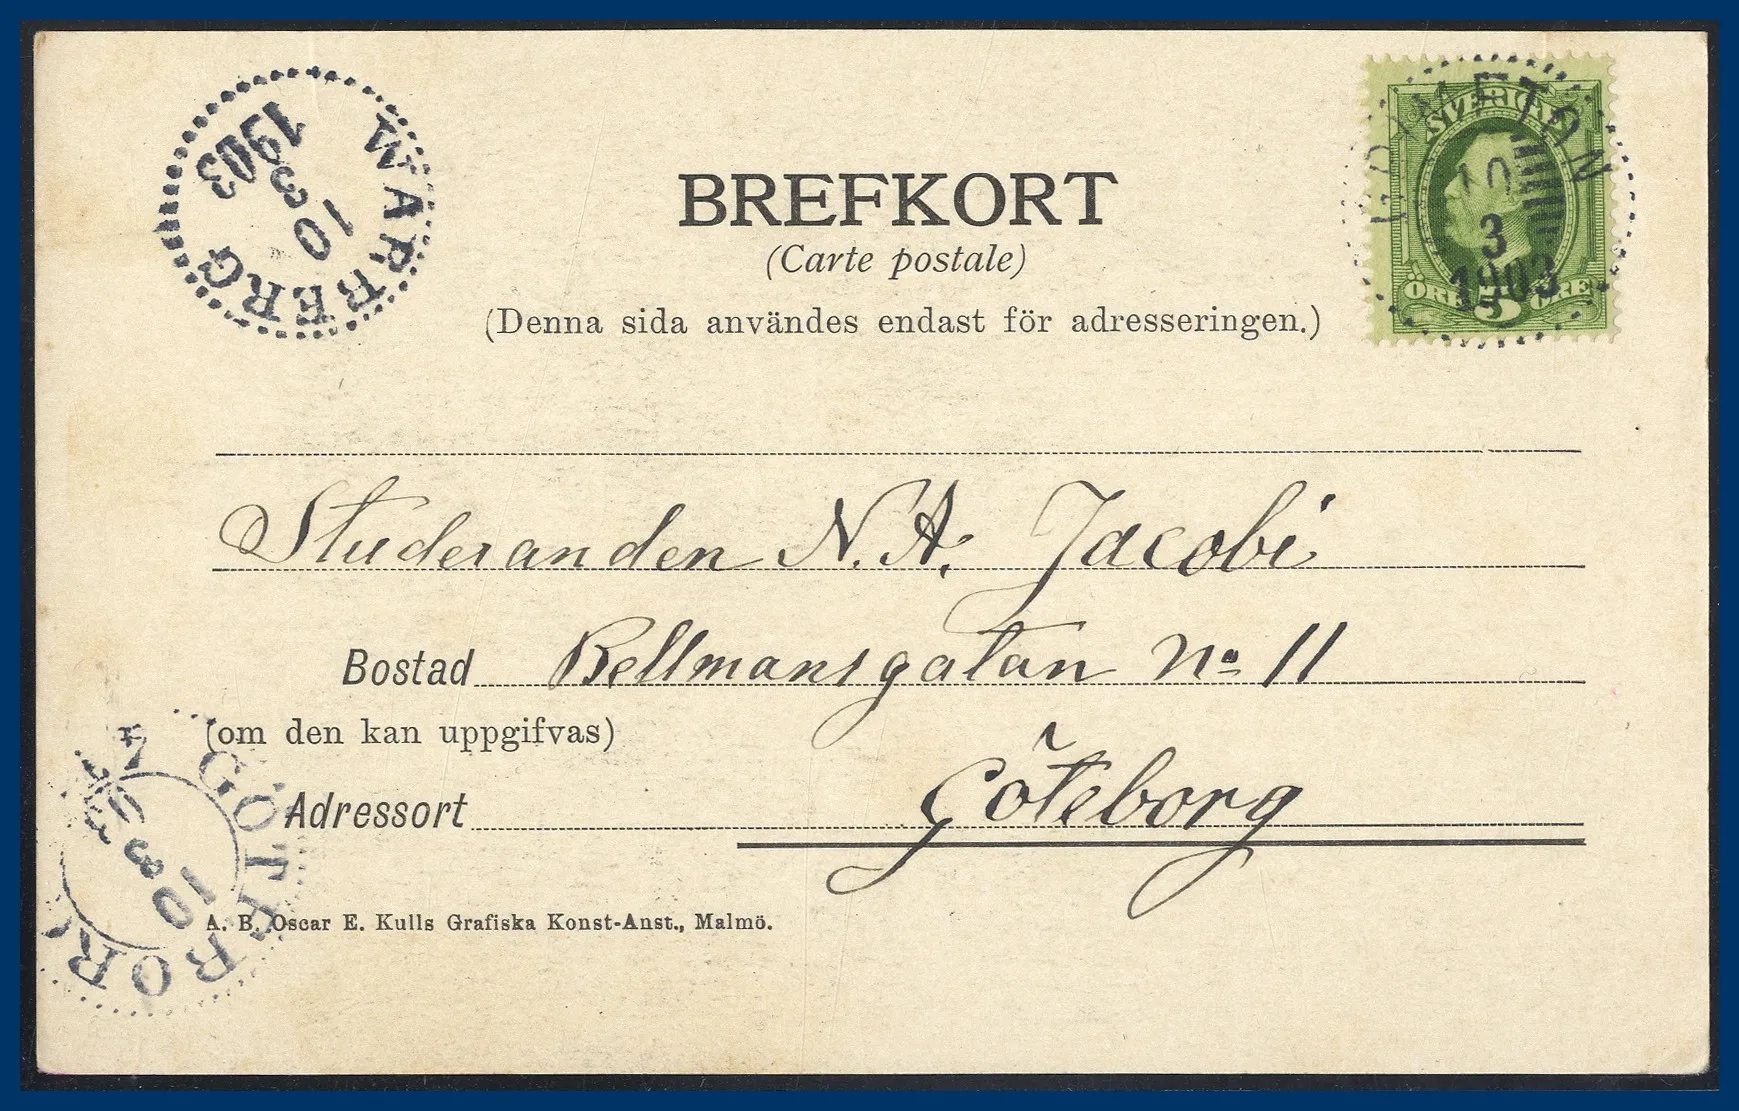 WARBERG
10
3
1903
BREFKORT
(Carte postale)
(Denna sida användes endast för adresseringen.)
GRIMETON
SVERIGE
10
3
1903
ÖRE 5 ÖRE
Studeranden N. A. Jacobi
Bostad Bellmansgatan No 11
(om den kan uppgifvas)
Adressort Göteborg
GÖTEBORG
10
3
A. B. Oscar E. Kulls Grafiska Konst-Anst., Malmö.